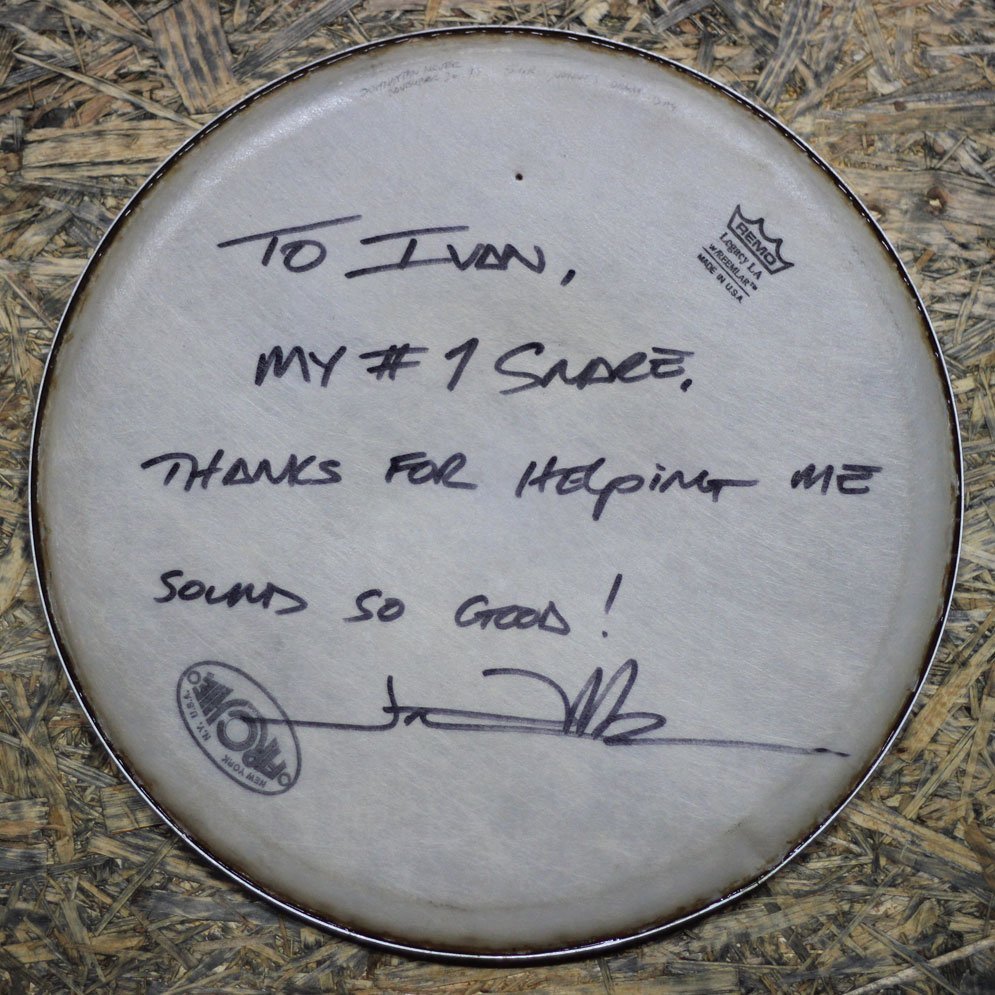 TO IVAN,
MY #1 SNARE.
THANKS FOR HELPING ME
SOUND SO GOOD!
REMO
Legacy LA
W/REEMLAR™
MADE IN U.S.A.
N.Y. U.S.A.
NEW YORK